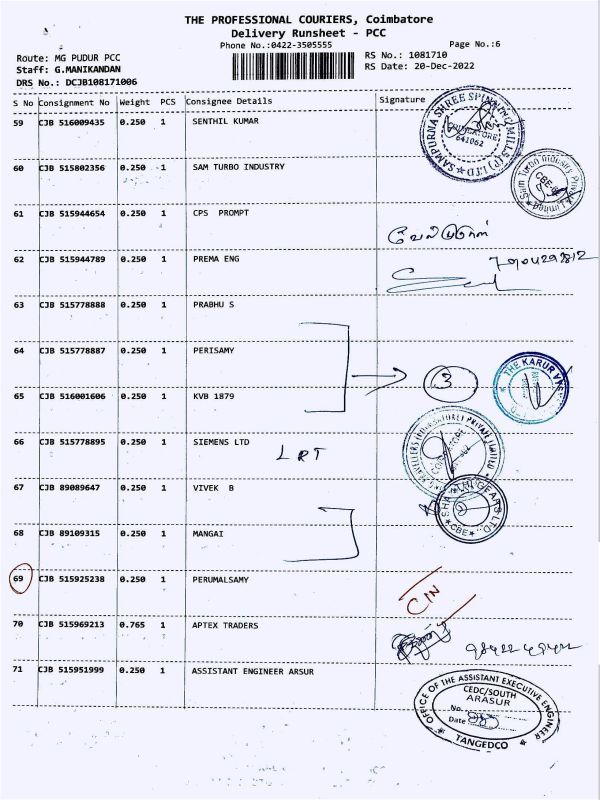 THE PROFESSIONAL COURIERS, Coimbatore
Delivery Runsheet - PCC
Phone No.:0422-3505555
Page No.:6
Route: MG PUDUR PCC
RS No.: 1081710
Staff: G.MANIKANDAN
RS Date: 20-Dec-2022
DRS No.: DCJB108171006
S No Consignment No Weight PCS Consignee Details Signature
59 CJB 516009435 0.250 1 SENTHIL KUMAR
SAMPURNA SHREE SPINNING MILLS (P) LTD
COIMBATORE
641062
60 CJB 515802356 0.250 1 SAM TURBO INDUSTRY
Sam Turbo Industry Private Limited
CBE
61 CJB 515944654 0.250 1 CPS PROMPT
62 CJB 515944789 0.250 1 PREMA ENG
63 CJB 515778888 0.250 1 PRABHU S
64 CJB 515778887 0.250 1 PERISAMY
3
THE KARUR
65 CJB 516001606 0.250 1 KVB 1879
66 CJB 515778895 0.250 1 SIEMENS LTD
LRT
PRIVATE LIMITED
67 CJB 89089647 0.250 1 VIVEK B
GEARS LTD
CBE
68 CJB 89109315 0.250 1 MANGAI
69 CJB 515925238 0.250 1 PERUMALSAMY
CIN
70 CJB 515969213 0.765 1 APTEX TRADERS
71 CJB 515951999 0.250 1 ASSISTANT ENGINEER ARSUR
OFFICE OF THE ASSISTANT EXECUTIVE ENGINEER
CEDC/SOUTH
ARASUR
No.
Date
TANGEDCO